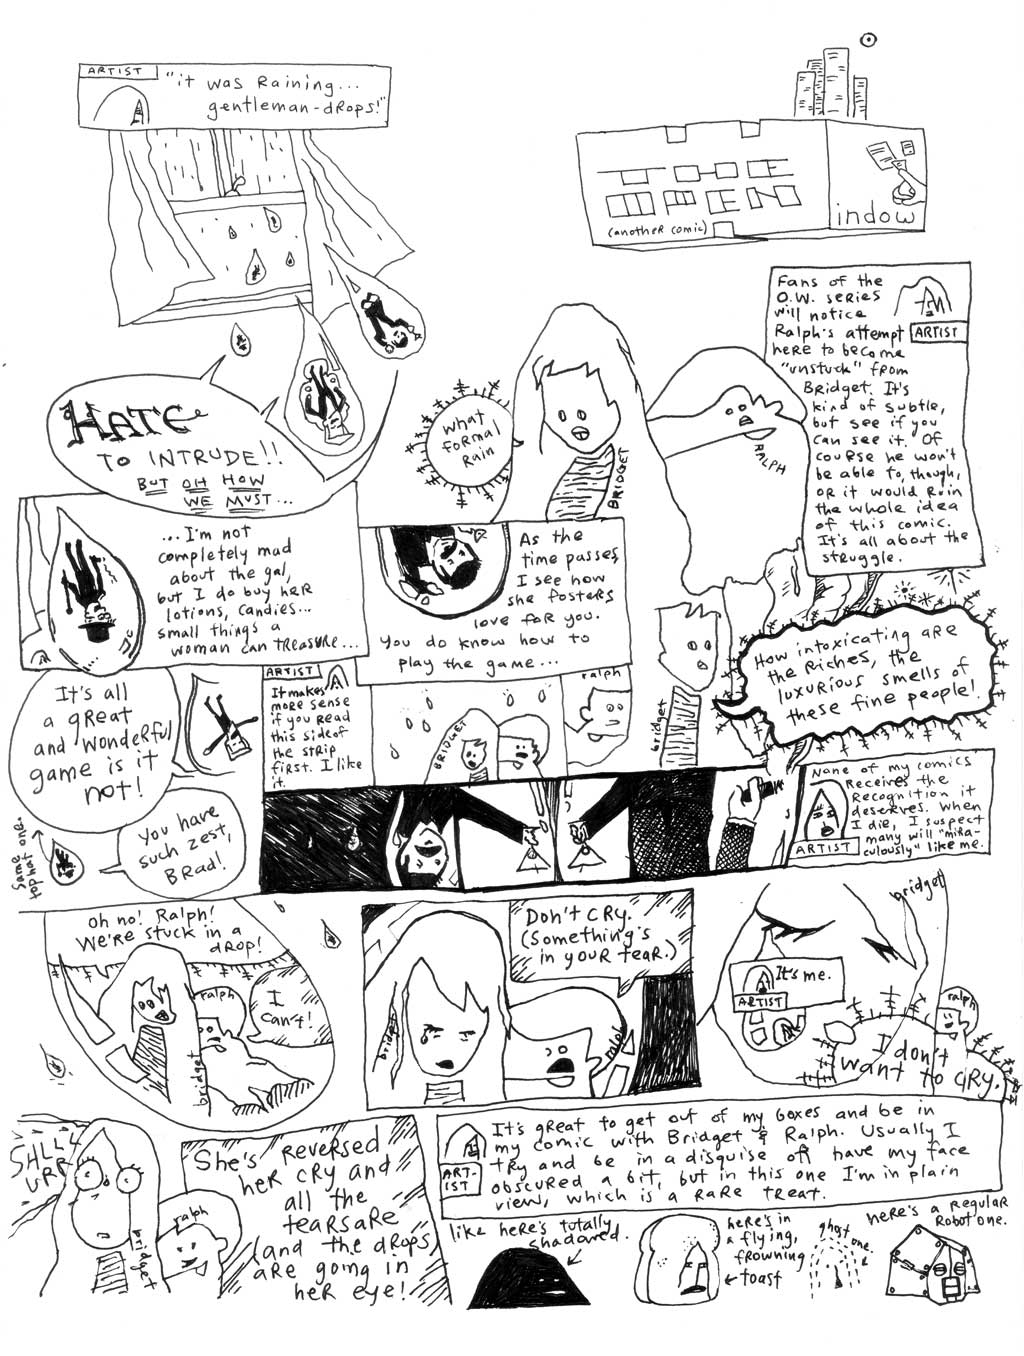 ARTIST
"it was Raining...
gentleman-drops!"
THE
OPEN
indow
(another comic)
Fans of the
O.W. series
will notice
Ralph's attempt
ARTIST
here to become
"unstuck" from
Bridget. It's
kind of subtle,
but see if you
can see it. Of
course he won't
be able to, though,
or it would ruin
the whole idea
of this comic.
It's all about the
struggle.
HATE
TO INTRUDE!!
BUT OH HOW
WE MUST...
What
formal
Rain
BRIDGET
RALPH
...I'm not
completely mad
about the gal,
but I do buy her
lotions, candies...
small things a
woman can treasure...
As the
time passes,
I see how
she fosters
love for you.
You do know how to
play the game...
How intoxicating are
the riches, the
luxurious smells of
these fine people!
It's all
a great
and wonderful
game is it
not!
ARTIST
It makes
more sense
if you read
this side of
the strip
first. I like
it.
BRIDGET
ralph
bridget
Same
top hat one.
You have
such zest,
Brad!
None of my comics
Receives the
Recognition it
deserves. When
I die, I suspect
many will "mira-
culously" like me.
ARTIST
oh no! Ralph!
We're stuck in a
drop!
ralph
I
can't!
bridget
Don't cry.
(Something's
in your tear.)
bridget
ralph
bridget
It's me.
ARTIST
ralph
I don't
want to cry.
SHLLL
URR
bridget
ralph
She's reversed
her cry and
all the
tears are
(and the drops)
are going in
her eye!
ART-
IST
It's great to get out of my boxes and be in
my comic with Bridget & Ralph. Usually I
try and be in a disguise or have my face
obscured a bit, but in this one I'm in plain
view, which is a rare treat.
like here's totally
shadowed.
here's in
a flying,
frowning
toast
ghost
one.
here's a regular
Robot one.